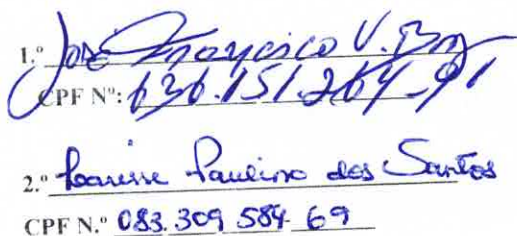 1.º José Francisco V. 
CPF Nº: 636.151.264-91
2.º Larisse Paulino dos Santos
CPF N.º 083.309 584-69